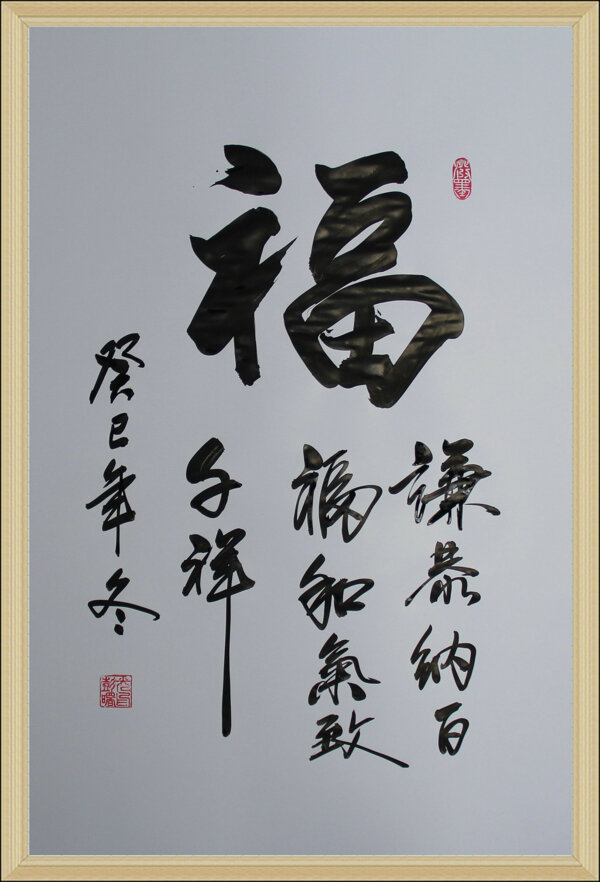 福
謙恭納百
福和氣致
千祥
癸巳年冬